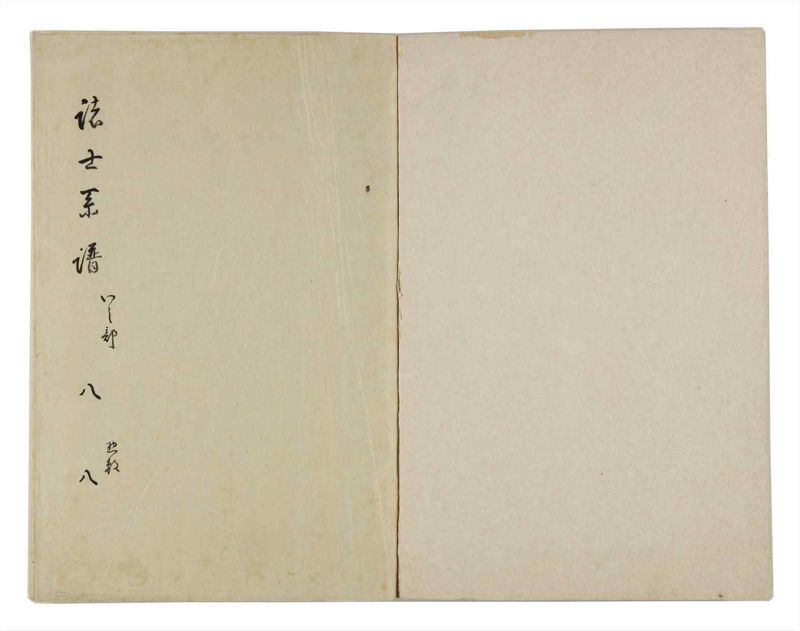 諸士系譜 いノ部 八 惣数 八